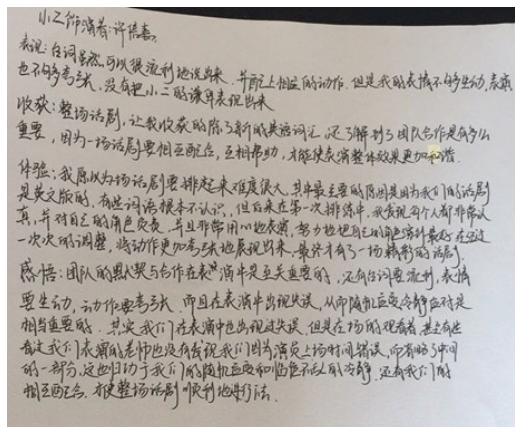 小二饰演者:许倍嘉.
表现:台词虽然可以很流利地说出来,并配上相应的动作.但是我的表情不够生动,表演
也不够夸张,没有把小二的谦卑表现出来
收获:整场话剧,让我收获的除了新的英语词汇,还了解到了团队合作是有多么
重要,因为一场话剧要相互配合,互相帮助,才能使表演整体效果更加和谐.
体验:我原以为场话剧要排起来难度很大,其中最主要的原因是因为我们的话剧
是英文版的,有些词语根本不认识,但后来在第一次排练中,我发现每个人都非常认
真,并对自己的角色负责,并且非常用心地表演,努力地把自己的角色演到最好.在经过
一次次的调整,将动作更加夸张地展现出来,最终才有了一场精彩的话剧.
感悟:团队的默契与合作在表演中是至关重要的,还有台词要流利,表情
要生动,动作要夸张.而且在表演中出现失误,从而随机应变冷静应对是
相当重要的.其实我们在表演中也出现过失误,但是在场的观看者,甚至有些
看过我们表演的老师也没有发现我们因为演员上场时间错误,而省略了中间
的一部分,这也归功于我们的随机应变和临危不乱的冷静,还有我们的
相互配合,才使整场话剧顺利地进行法.